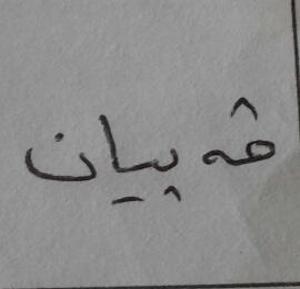 ڤەپیان